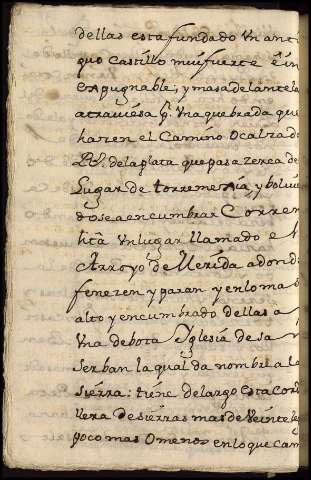 dellas esta fundado Un anti
guo Castillo muifuerte è in
expugnable; y mas adelante la
atrauiesa Una quebrada que
hazen el Camino o Calzada
de la plata que pasa zerca del
Lugar de torremexia, y boluien
dose a encumbrar Corren
hta Un lugar llamado el
Arroyo de Merida adonde
fenezen y paran y en lo mas
alto y encumbrado dellas a
Una debota Iglesia de sa
Serban la qual da nombre a la
sierra: tiene de largo esta Cord
llera De sierras mas de Veinte le
poco mas O menos en lo que Cam